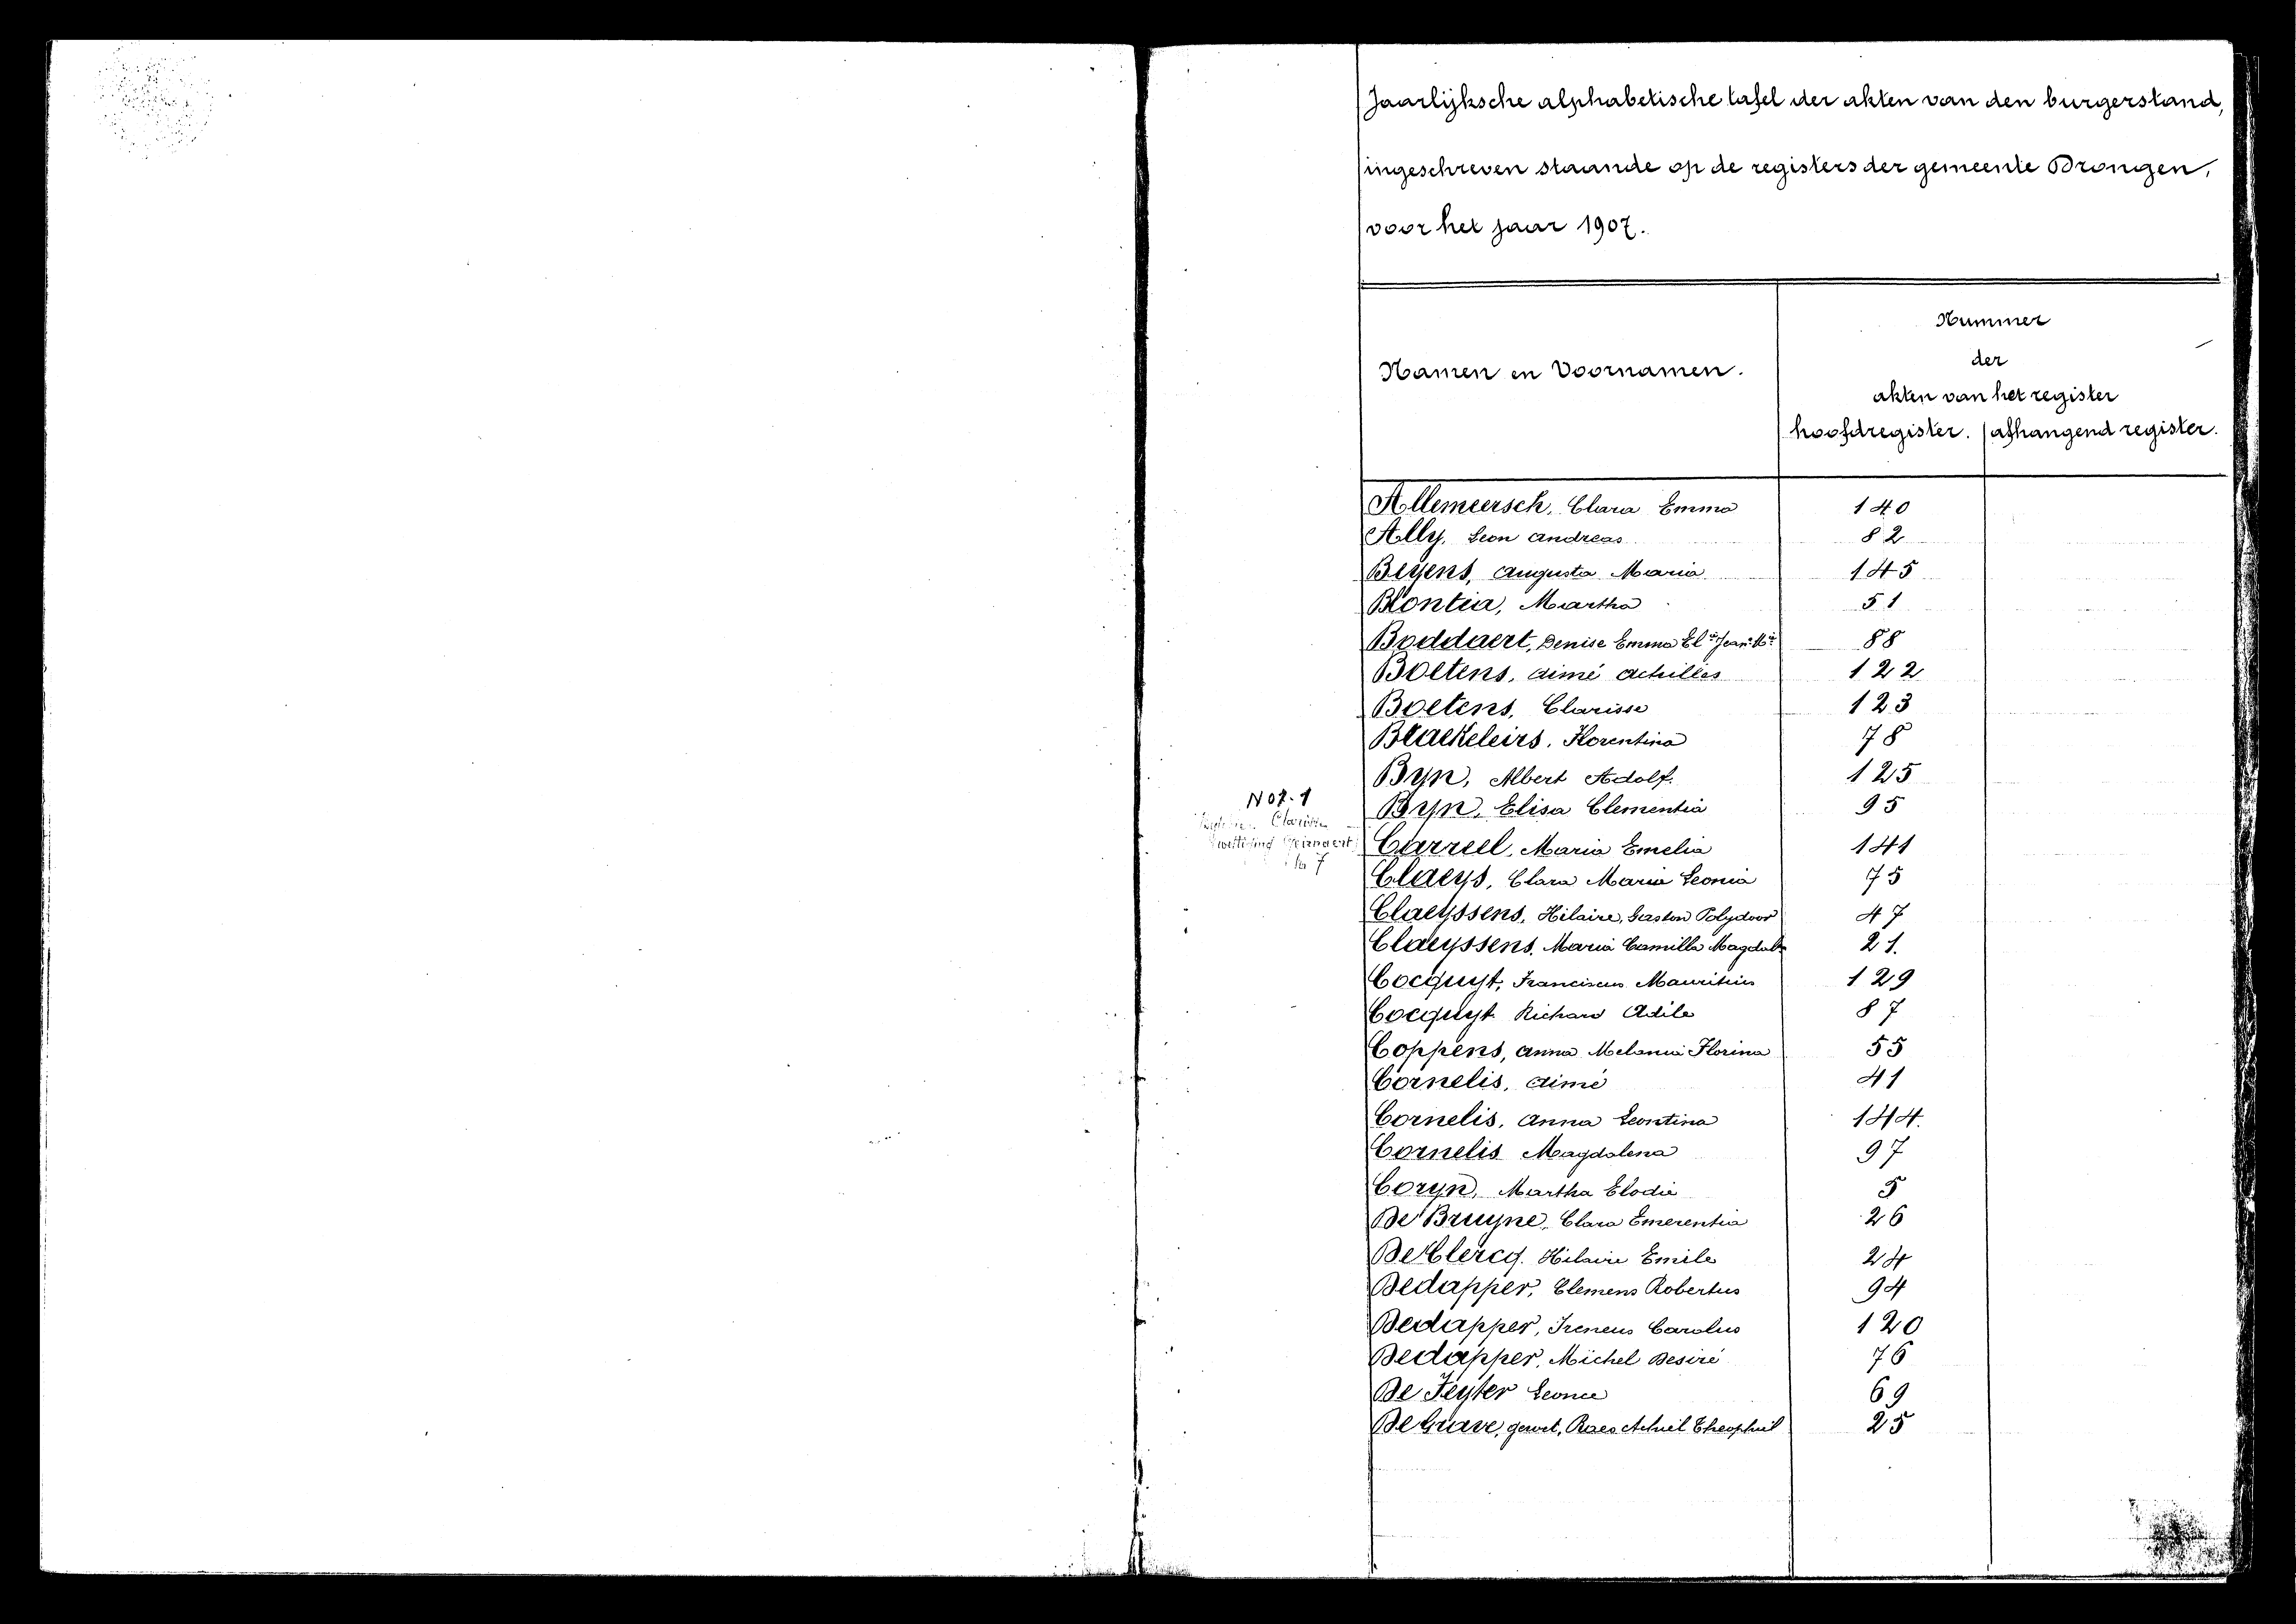 Jaarlijksche alphabetische tafel der akten van den burgerstand,
ingeschreven staande op de registers der gemeente Drongen,
voor het jaar 1907.
Namen en Voornamen.
Nummer
der
akten van het register
hoofdregister. afhangend register.
Allemeersch, Clara Emma 140
Ally, Leon Andreas 82
Beyens, Augusta Maria 145
Blontia, Martha 51
Boddaert, Denise Emma 88
Boetens, Aimé Achilles 122
Boetens, Clarisse 123
Braekeleirs, Florentina 78
Byn, Albert Adolf. 125
N 07.1
Byn, Elisa Clementia 95
Clarisse
Carreel, Maria Emelia 141
7
Claeys, Clara Maria Leonia 75
Claeyssens, Hilaire, Gaston Polydoor 47
Claeyssens, Maria Camilla 21.
Cocquyt, Franciscus Mauritius 129
Cocquyt Richard Adile 87
Coppens, Anna Melania Florina 55
Cornelis, Aimé 41
Cornelis, Anna Leontina 144.
Cornelis Magdalena 97
Coryn, Martha Elodie 5
De Bruyne, Clara Emerentia 26
De Clercq. Hilaire Emile 24
Dedapper, Clemens Robertus 94
Dedapper, Ireneus Carolus 120
Dedapper, Michel Desiré 76
De Feyter Leonce 69
De Grave, gewet, Raes Achiel Theophiel 25